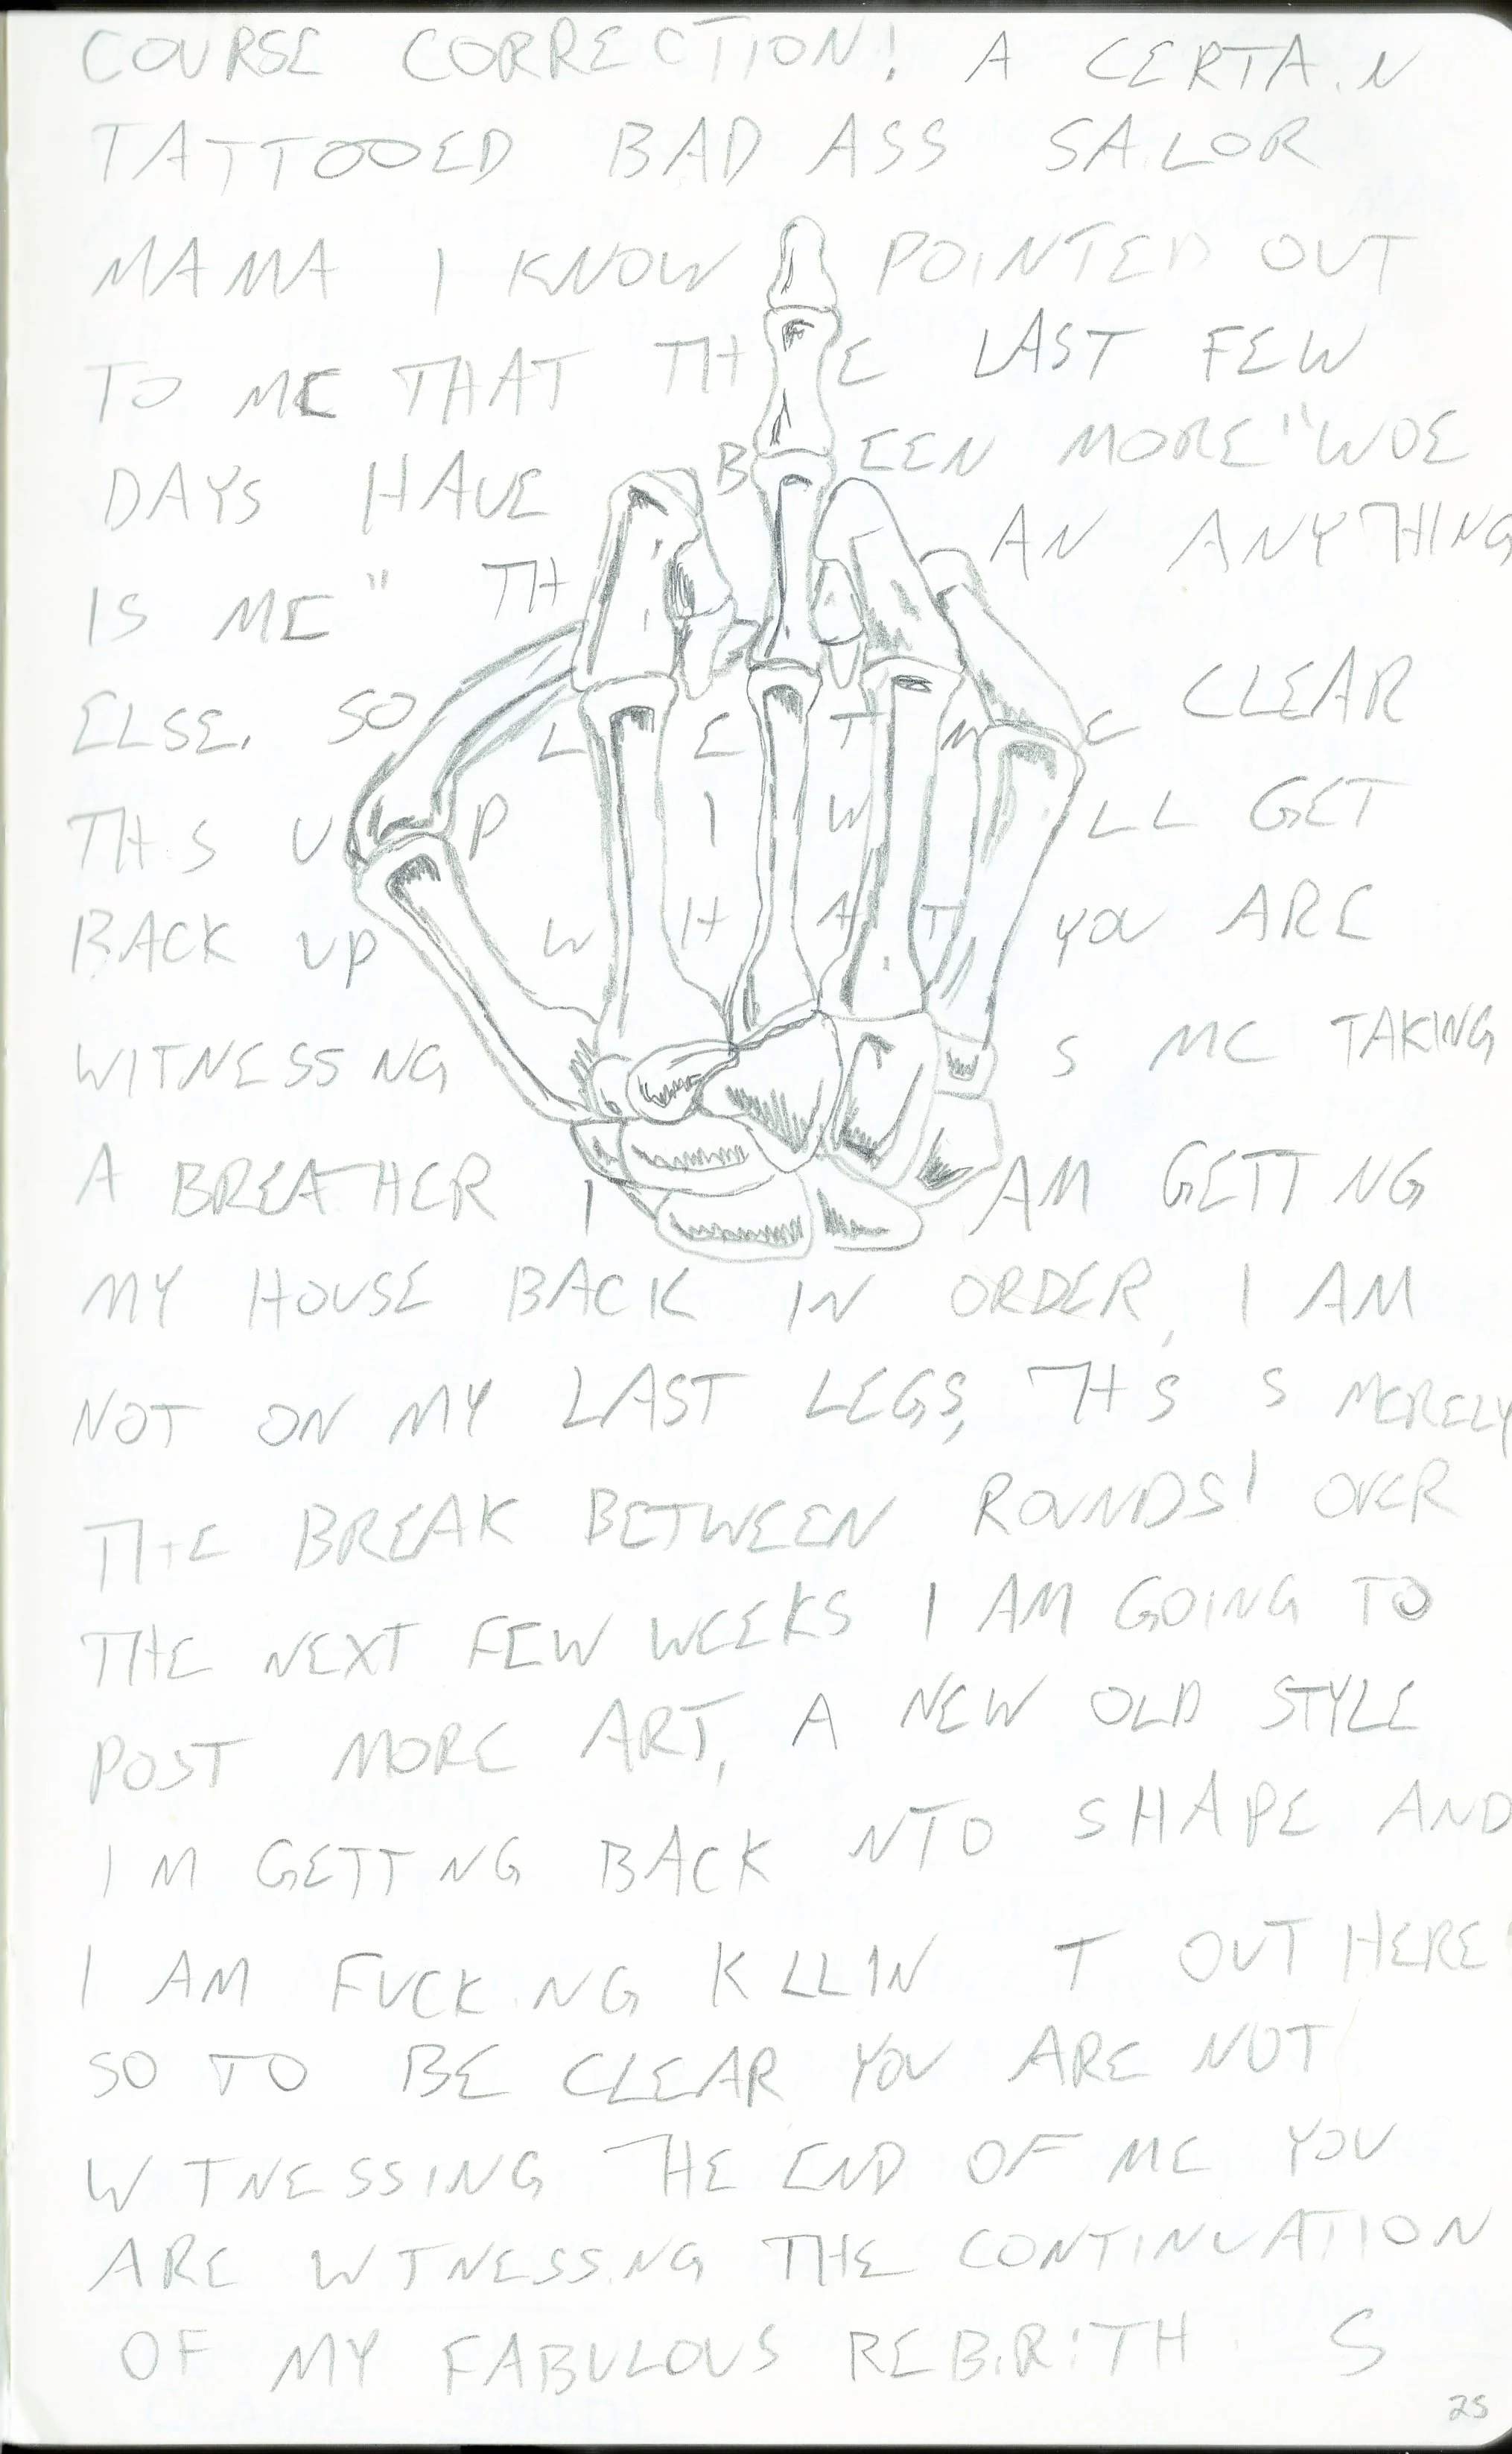 COURSE CORRECTION! A CERTAIN
TATTOOED BAD ASS SAILOR
MAMA I KNOW POINTED OUT
TO ME THAT THE LAST FEW
DAYS HAVE BEEN MORE "WOE
IS ME" THAN ANYTHING
ELSE. SO LET ME CLEAR
THIS UP I WILL GET
BACK UP WHAT YOU ARE
WITNESSING IS ME TAKING
A BREATHER I AM GETTING
MY HOUSE BACK IN ORDER, I AM
NOT ON MY LAST LEGS, THIS IS MERELY
THE BREAK BETWEEN ROUNDS! OVER
THE NEXT FEW WEEKS I AM GOING TO
POST MORE ART, A NEW OLD STYLE
IM GETTING BACK INTO SHAPE AND
I AM FUCKING KILLIN IT OUT HERE!
SO TO BE CLEAR YOU ARE NOT
WITNESSING THE END OF ME YOU
ARE WITNESSING THE CONTINUATION
OF MY FABULOUS REBIRITH. S
25